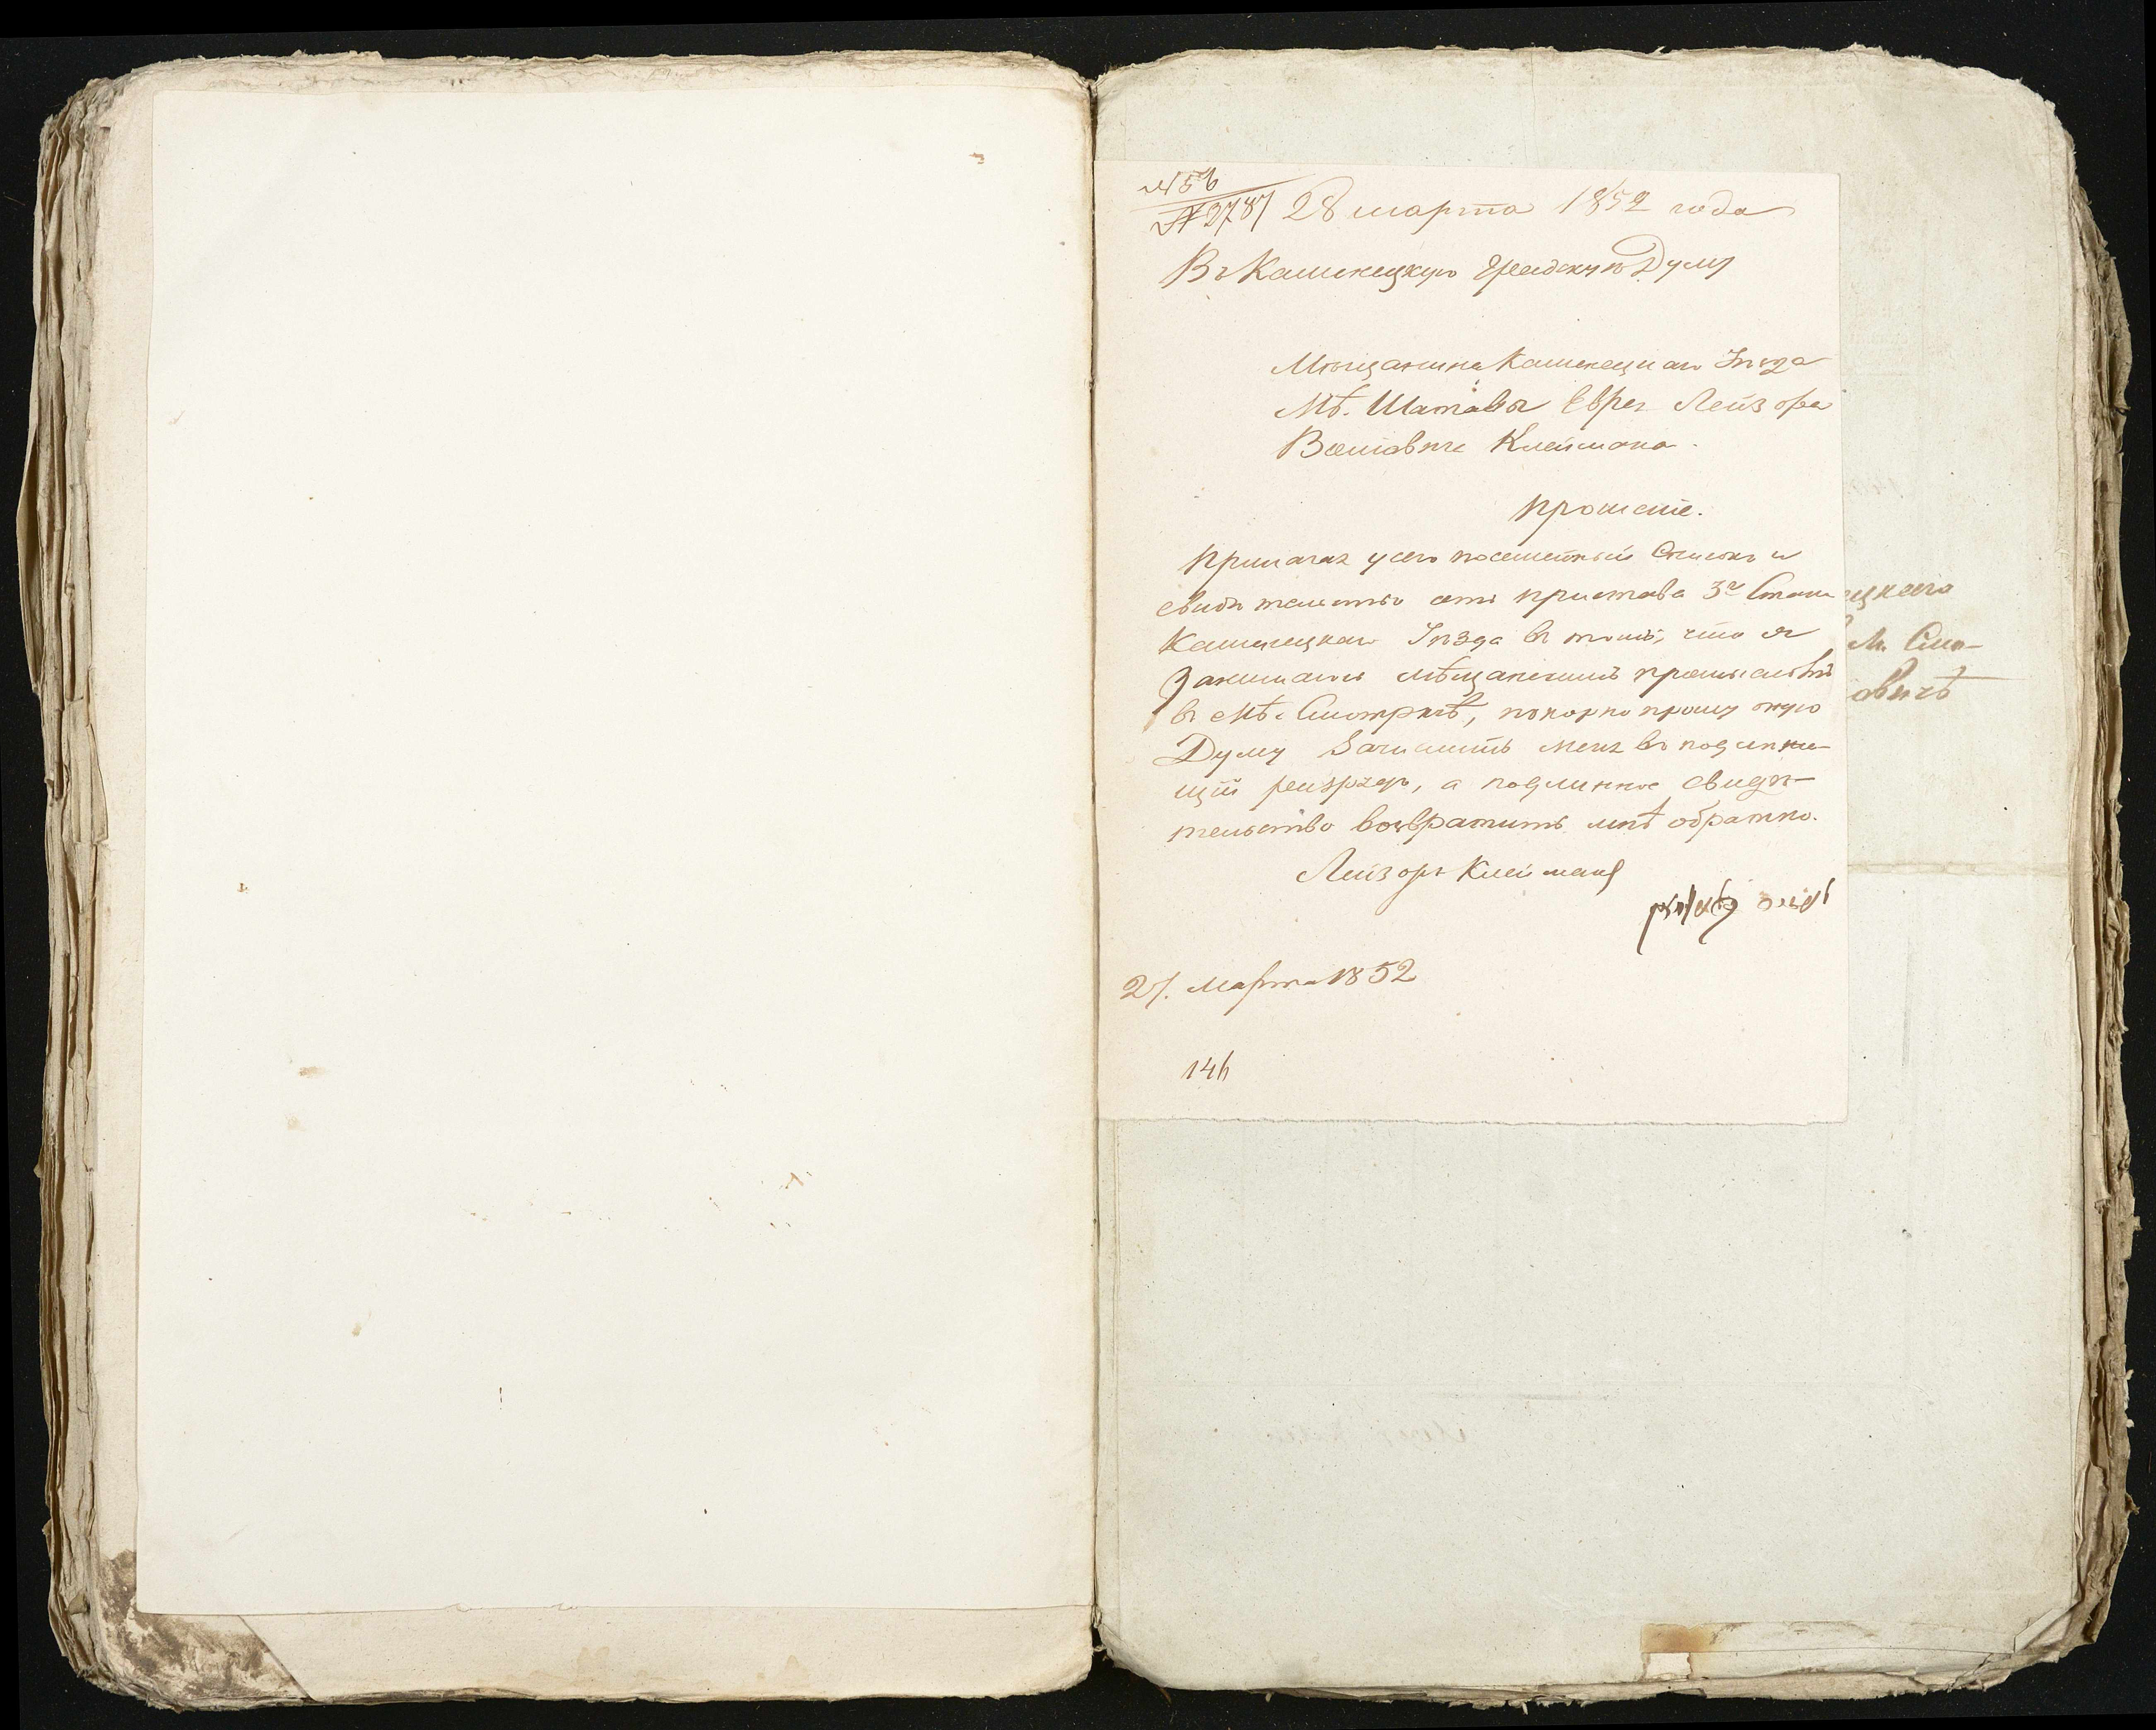 № 56
№ 2787 28 марта 1852 года
Въ Каменецкую Градскую Думу
Мѣщанина Каменецкаго Уѣзда
Мѣ. Шатавы Еврея Лейзора
Клеймана.
прошеніе.
Прилагая у сего посемейный Списокъ и
свидѣтельство отъ пристава 3го Стана
Каменецкаго Уѣзда въ томъ, что я
Занимаюсь мѣщанскимъ промысломъ
въ Мѣ. Смотричѣ, покорно прошу оную
Думу Зачислить меня въ подлежа-
щій разрядъ, а подлинное свидѣ-
тельство возвратить мнѣ обратно.
Лейзоръ Клейманъ
27. Марта 1852
146
ецкаго
М. Смо-
овичѣ